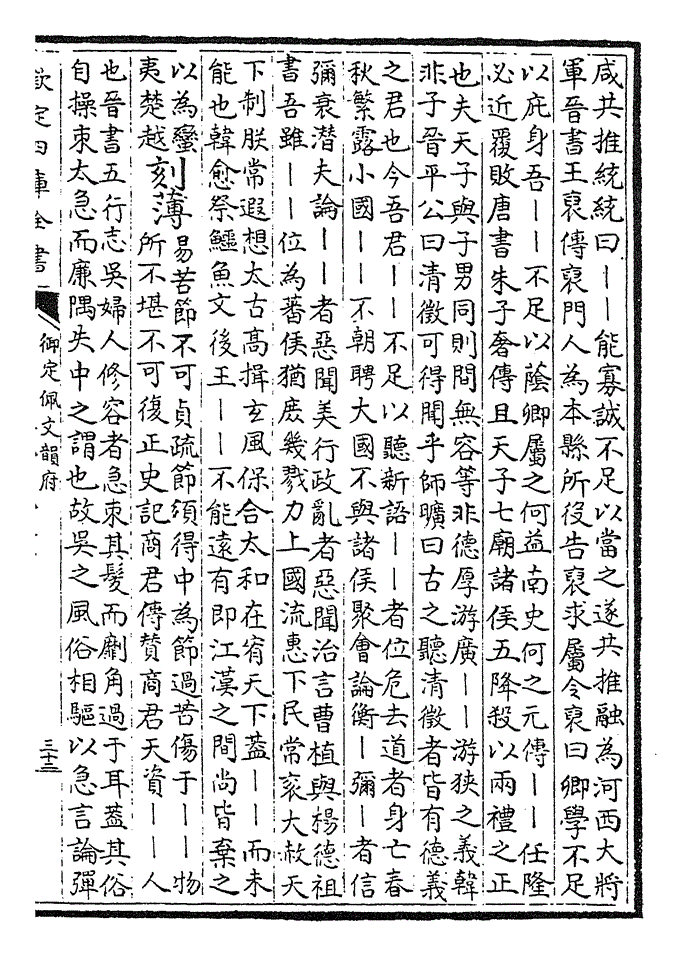 咸共推統統曰——能寡誠不足以當之遂共推融為河西大將
軍晉書王裒傳裒門人為本縣所役告裒求屬令裒曰卿學不足
以庇身吾——不足以蔭卿屬之何益南史何之元傳——任隆
必近覆敗唐書朱子奢傳且天子七廟諸侯五降殺以兩禮之正
也夫天子與子男同則間無容等非德厚游廣——游狹之義韓
非子晉平公曰清徵可得聞乎師曠曰古之聽清徵者皆有德義
之君也今吾君——不足以聽新語——者位危去道者身亡春
秋繁露小國——不朝聘大國不與諸侯聚會論衡—彌—者信
彌衰潛夫論——者惡聞美行政亂者惡聞治言曹植與楊德祖
書吾雖——位為蕃侯猶庶幾戮力上國流惠下民常衮大赦天
下制朕常遐想太古高揖玄風保合太和在宥天下蓋——而未
能也韓愈祭鱷魚文後王——不能遠有即江漢之間尚皆棄之
以為蠻
夷楚越
刻薄
易苦節不可貞疏節須得中為節過苦傷于——物
所不堪不可復正史記商君傳贊商君天資——人
也晉書五行志吳婦人修容者急束其髮而劘角過于耳蓋其俗
自操束太急而廉隅失中之謂也故吳之風俗相驅以急言論彈
欽定四庫全書
御定佩文韻府
三十三